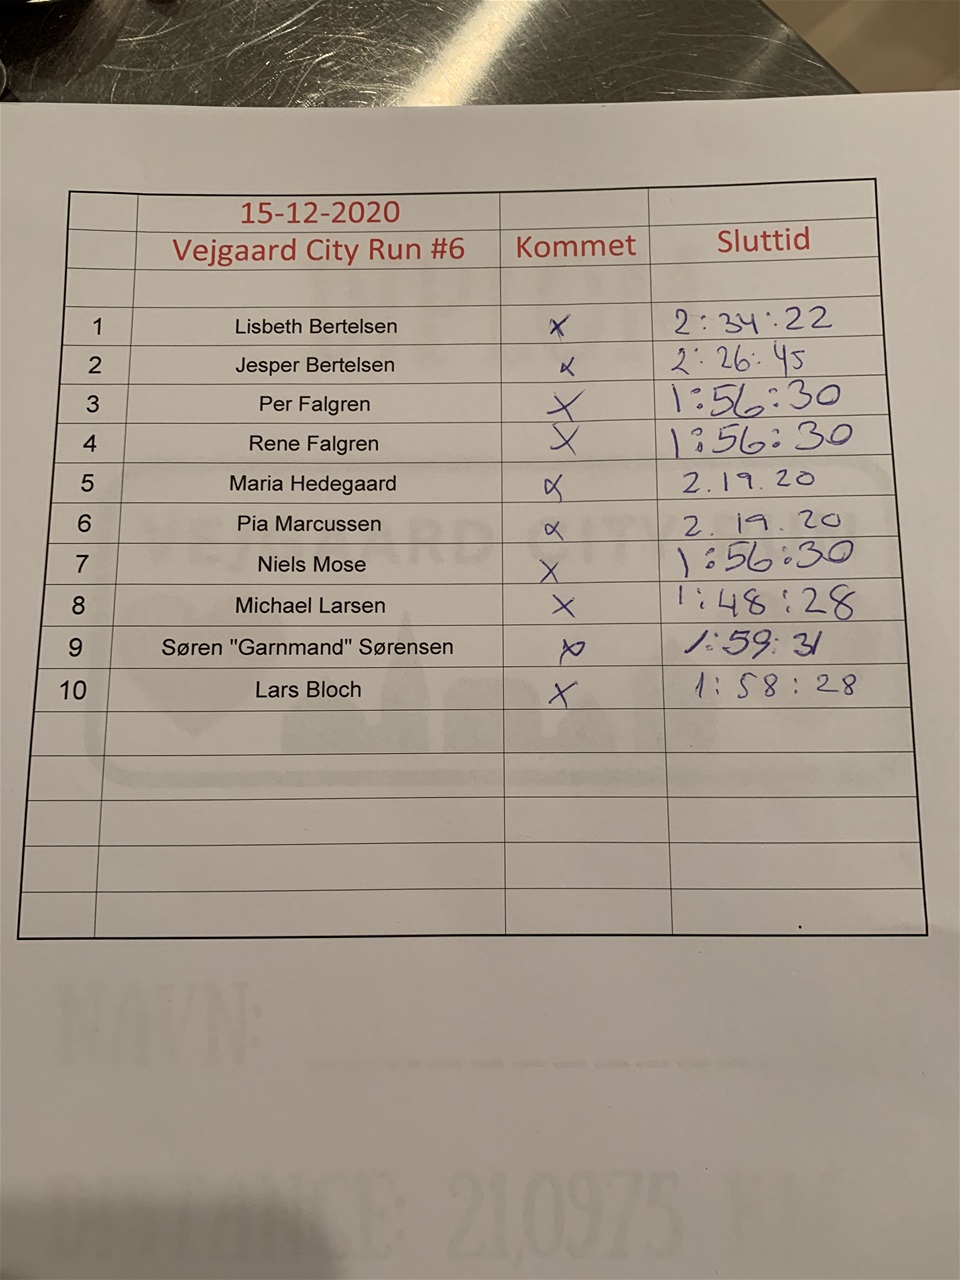 15-12-2020
Vejgaard City Run #6 Kommet Sluttid
1 Lisbeth Bertelsen x 2:34:22
2 Jesper Bertelsen x 2:26:45
3 Per Falgren x 1:56:30
4 Rene Falgren x 1:56:30
5 Maria Hedegaard x 2.19.20
6 Pia Marcussen x 2.19.20
7 Niels Mose x 1:56:30
8 Michael Larsen x 1:48:28
9 Søren "Garnmand" Sørensen x 1:59:31
10 Lars Bloch x 1:58:28
NAVN:
DISTANCE: 21,0975